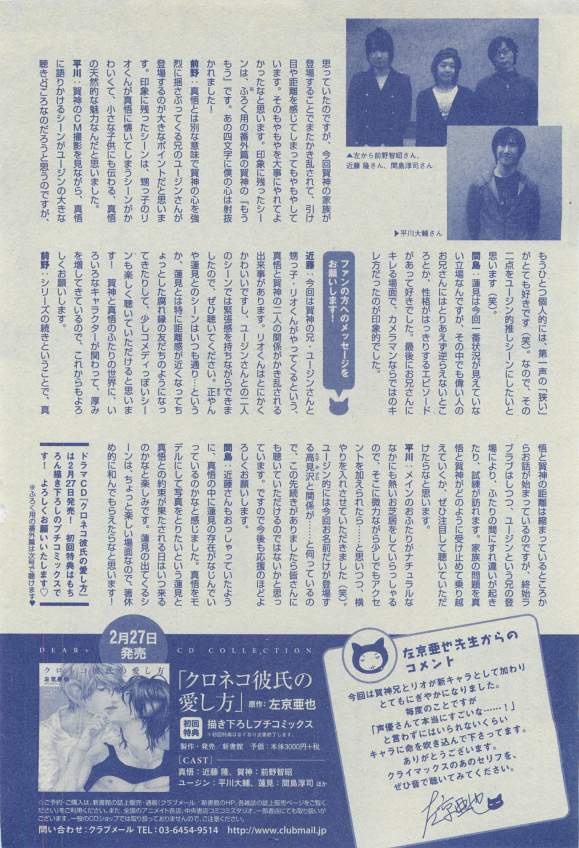 思っていたのですが、今回賀神の家族が
登場することでまたかき乱されて、引け
目や距離を感じてしまってもやもやして
います。そのもやもやを大事にやれてよ
かったなと思います。印象に残ったシー
ンは、ふろく用の番外篇の賀神の「もう
もう」です。あの四文字に僕の心は射抜
かれました！
前野：真悟とは別な意味で賀神の心を強
烈に揺さぶってくる兄のユージンさんが
登場するのが大きなポイントだと思いま
す。印象に残ったシーンは、甥っ子のリ
オくんが真悟に懐いているシーンがか
わいくて、小さな子供にも伝わる、真悟
の天然的な魅力なんだと思いました。
平川：賀神のCM撮影を見ながら、真悟
に語りかけるシーンがユージンの大きな
聴きどころなのだろうと思うのですが、
▲左から前野智昭さん、
近藤 隆さん、間島淳司さん
▶平川大輔さん
もうひとつ個人的には、第一声の「狭い」
がとても好きです（笑）。なので、その
二点をユージン的推しシーンにしたいと
思います（笑）。
間島：蓮見は今回一番状況が見えていな
い立場なんですが、その中でも偉い人の
お兄さんにはとりあえず逆らえないとこ
ろとか、性格がはっきりするエピソード
があって好きでした。最後にお兄さんに
キレる場面で、カメラマンならではのキ
レ方だったのが印象的でした。
ファンの方へのメッセージを
お願いします！
近藤：今回は賀神の兄・ユージンさんと
甥っ子・リオくんがやってくるという、
真悟と賀神の二人の関係がかき乱される
出来事があります。リオくんはとにかく
かわいいですし、ユージンさんとの二人
のシーンでは緊張感を持ちながらできま
したので、ぜひ聴いてください。正やん
や蓮見とのシーンはいつも通り…という
か、蓮見とは特に距離感が近くなってち
ょっとした腐れ縁の友だちのようになっ
てきたりして、少しコメディっぽいシー
ンも楽しく聴いていただけると思いま
す！　賀神と真悟のふたりの世界に、い
ろいろなキャラクターが関わって、厚み
を増してきているので、これからもよろ
しくお願いします。
前野：シリーズの続きということで、真
悟と賀神の距離は縮まっているところか
らお話が始まっているのですが、終始ラ
ブラブはしつつ、ユージンという兄の登
場により、ふたりの間にすれ違いが起き
たり、試練が訪れます。家族の問題を真
悟と賀神がどのように受け止めて乗り越
えていくか、ぜひ注目して聴いていただ
けたらなと思います。
平川：メインのおふたりがナチュラルな
なかにも熱いお芝居をしていらっしゃる
ので、そこに微力ながら少しでもアクセ
ントを加えられたら……と思いつつ、横
やりを入れさせていただきました（笑）。
ユージン的には今回お名前だけが登場す
る高見沢と関係が……と伺っているの
で、この先続きがありましたら皆さんに
も聴いていただけるのではないかと思っ
ています。ですので今後も応援のほどよ
ろしくお願いします。
間島：近藤さんもおっしゃっていたよう
に、真悟の中に蓮見の存在がなじんでい
っているのかなと感じました。真悟をモ
デルにして写真をとりたいという蓮見と
真悟との約束が果たされる日はいつ来る
のかなと楽しみです。蓮見の出てくるシ
ーンは、ちょうど楽しい場面なので、箸休
め的に和んでもらえたらなと思います！
ドラマCD「クロネコ彼氏の愛し方」
は2月27日発売！　初回特典はもち
ろん描き下ろしのプチコミックスで
す！　よろしくお願いいたします♡
※ふろく用の番外篇は次号で聴けます♥
2月27日
発売
DEAR+ CD COLLECTION
クロネコ彼氏の愛し方
左京亜也
「クロネコ彼氏の
愛し方」原作：左京亜也
初回
特典
描き下ろしプチコミックス
※初回特典はなくなり次第終了します。
製作・発売　新書館　予価：本体3000円＋税
【CAST】
真悟：近藤 隆、賀神：前野智昭
ユージン：平川大輔、蓮見：間島淳司 ほか
☆ご予約・ご購入は、新書館の誌上販売・通販（クラブメール／新書館のHP、各雑誌の誌上販売ページをご覧くだ
さい）をご利用ください。また、全国のアニメイト各店、中央書店コミコミスタジオ、一部書店にてもお取り扱いが
ございます。一般のCDショップでは取り扱っておりませんので、ご注意ください。
問い合わせ：クラブメール TEL：03-6454-9514　http://www.clubmail.jp
左京亜也先生からの
コメント
今回は賀神兄とリオが新キャラとして加わり
とてもにぎやかになりました。
毎度のことですが
「声優さんて本当にすごいな……！」
と言わずにはいられないくらい
キャラに命を吹き込んで下さってます。
ありがとうございます。
クライマックスのあのセリフを、
ぜひ音で聴いてみてください。
左京亜也